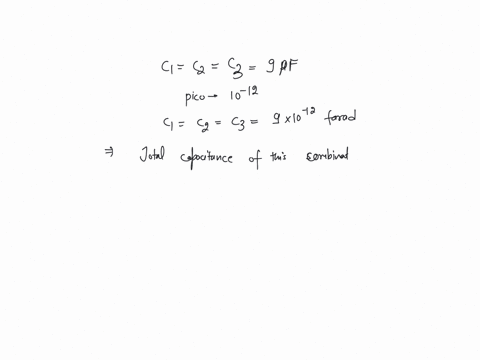 C1 = C2 = C3 = 9 pF
pico → 10^-12
C1 = C2 = C3 = 9 × 10^-12 farad
⇒ Total capacitance of this combinat